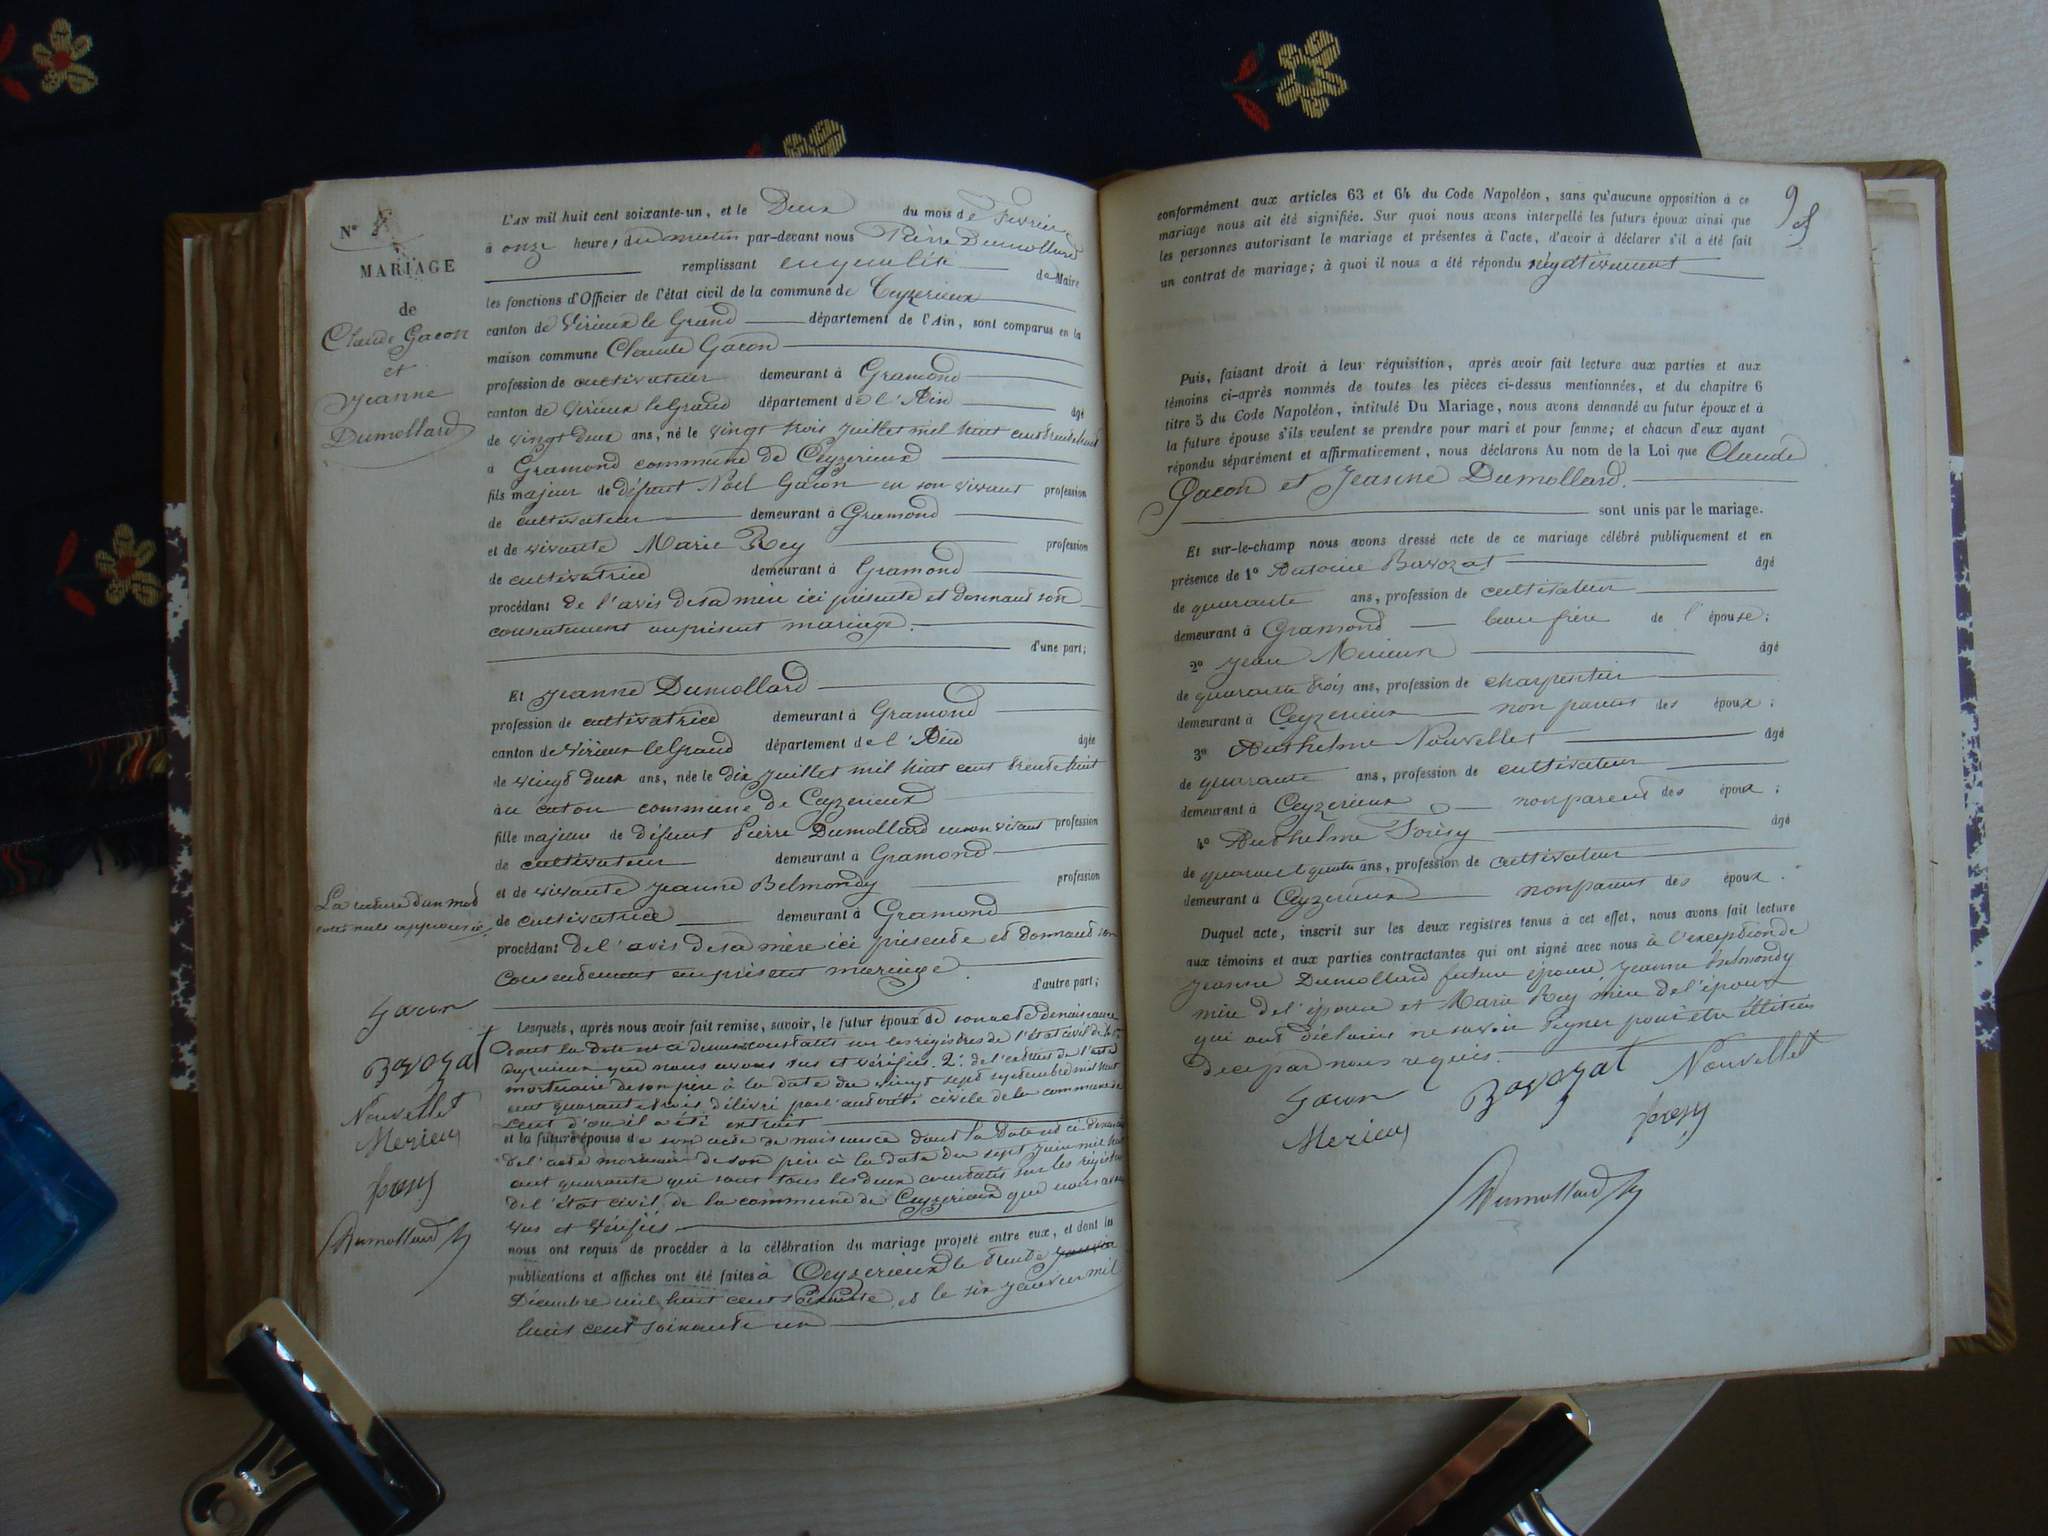 N°
MARIAGE
de
Claude Gacon
et
Jeanne
Dumollard
L'AN mil huit cent soixante-un, et le Deux du mois de Février
à onze heures du matin par-devant nous Pierre Dumollard
remplissant en qualité de Maire
les fonctions d'Officier de l'état civil de la commune de Ceyzerieux
canton de Virieux le Grand département de l'Ain, sont comparus en la
maison commune Claude Gacon
profession de cultivateur demeurant à Gramond
canton de Virieux le Grand département de l'Ain âgé
de vingt deux ans, né le vingt trois juillet mil huit cent trente huit
à Gramond commune de Ceyzerieux
fils majeur de défunt Noël Gacon en son vivant profession
de cultivateur demeurant à Gramond
et de vivante Marie Rey profession
de cultivatrice demeurant à Gramond
procédant de l'avis de sa mère ici présente et donnant son
consentement au présent mariage.
d'une part;
Et Jeanne Dumollard
profession de cultivatrice demeurant à Gramond
canton de Virieux le Grand département de l'Ain âgée
de vingt deux ans, née le dix juillet mil huit cent trente huit
à commune de Ceyzerieux
fille majeure de défunt Pierre Dumollard en son vivant profession
de cultivateur demeurant à Gramond
et de vivante Jeanne Belmondy profession
de cultivatrice demeurant à Gramond
procédant de l'avis de sa mère ici présente et donnant son
consentement au présent mariage.
d'autre part;
La rature d'un mot
nul approuvée.
Lesquels, après nous avoir fait remise, savoir, le futur époux de son acte de naissance
dont la date est ci dessus constatés sur les registres de l'état civil de
Ceyzerieux que nous avons vus et vérifiés. 2° de l'extrait de l'acte
mortuaire de son père à la date du vingt sept septembre mil huit
cent quarante trois délivré par l'autorité civile de la commune de
d'où il a été extrait
et la future épouse de son acte de naissance dont la date est ci dessus
de l'acte mortuaire de son père à la date du sept juin mil huit
cent quarante qui sont tous les deux constatés sur les registres
de l'état civil de la commune de Ceyzerieux que nous avons
vus et vérifiés
nous ont requis de procéder à la célébration du mariage projeté entre eux, et dont les
publications et affiches ont été faites à Ceyzerieux le trente janvier
Décembre mil huit cent soixante, et le six janvier mil
huit cent soixante un
Gacon
Bavozat
Nouvellet
Merieux
Dumollard
conformément aux articles 63 et 64 du Code Napoléon, sans qu'aucune opposition à ce
mariage nous ait été signifiée. Sur quoi nous avons interpellé les futurs époux ainsi que
les personnes autorisant le mariage et présentes à l'acte, d'avoir à déclarer s'il a été fait
un contrat de mariage; à quoi il nous a été répondu négativement
Puis, faisant droit à leur réquisition, après avoir fait lecture aux parties et aux
témoins ci-après nommés de toutes les pièces ci-dessus mentionnées, et du chapitre 6
titre 5 du Code Napoléon, intitulé Du Mariage, nous avons demandé au futur époux et à
la future épouse s'ils veulent se prendre pour mari et pour femme; et chacun d'eux ayant
répondu séparément et affirmativement, nous déclarons Au nom de la Loi que Claude
Gacon et Jeanne Dumollard.
sont unis par le mariage.
Et sur-le-champ nous avons dressé acte de ce mariage célébré publiquement et en
présence de 1° Antoine Bavozat âgé
de quarante ans, profession de cultivateur
demeurant à Gramond beau frère de l'épouse;
2° Jean Merieux âgé
de quarante trois ans, profession de charpentier
demeurant à Ceyzerieux non parent des époux;
3° Anthelme Nouvellet âgé
de quarante ans, profession de cultivateur
demeurant à Ceyzerieux non parent des époux;
4° Anthelme âgé
de ans, profession de cultivateur
demeurant à Ceyzerieux non parent des époux.
Duquel acte, inscrit sur les deux registres tenus à cet effet, nous avons fait lecture
aux témoins et aux parties contractantes qui ont signé avec nous à l'exception de
Jeanne Dumollard future épouse, Jeanne Belmondy
mère de l'épouse et Marie Rey mère de l'époux
qui ont déclarées ne savoir signer pour être illitérées
de ce par nous requis.
Gacon Bavozat Nouvellet
Merieux
Dumollard